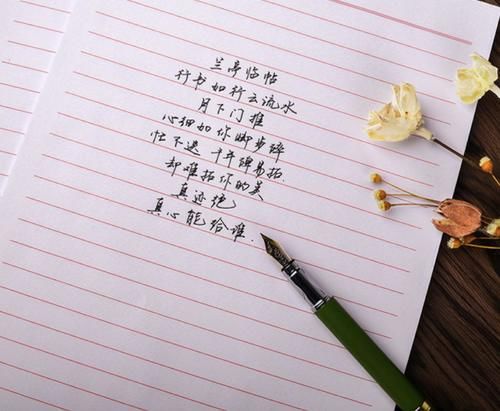 兰亭临帖
行书如行云流水
月下门推
心细如你脚步碎
忙不迭 千年碑易拓
却难拓你的美
真迹绝
真心能给谁.